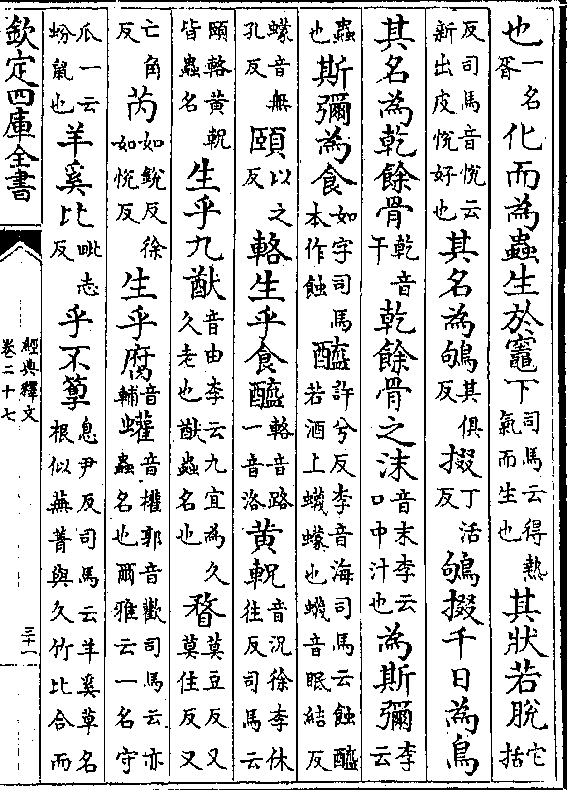 也一名胥化而為蟲生於竈下司馬云得熱氣而生也其狀若脫它括
反司馬音悅云新出皮悅好也其名為鴝其俱反掇丁活反鴝掇千日為鳥
其名為乾餘骨乾音干乾餘骨之沫音末李云口中汁也為斯彌李云
蟲也斯彌為食如字司馬本作蝕醯許兮反李音海司馬云蝕醯若酒上蠛蠓也蠛音眠結反
蠓音無孔反頤以之反輅生乎食醯輅音路一音洛黃軦音況徐李休往反司馬云
頤輅黃軦皆蟲名生乎九猷音由李云九宜為久久老也猷蟲名也瞀莫豆反又莫住反又
亡角反芮如銳反徐如悅反生乎腐音輔蠸音權郭音歡司馬云亦蟲名也爾雅云一名守
瓜一云蚡鼠也羊奚比毗志反乎不箰息尹反司馬云羊奚草名根似蕪菁與久竹比合而
欽定四庫全書
經典釋文
卷二十七
三十一